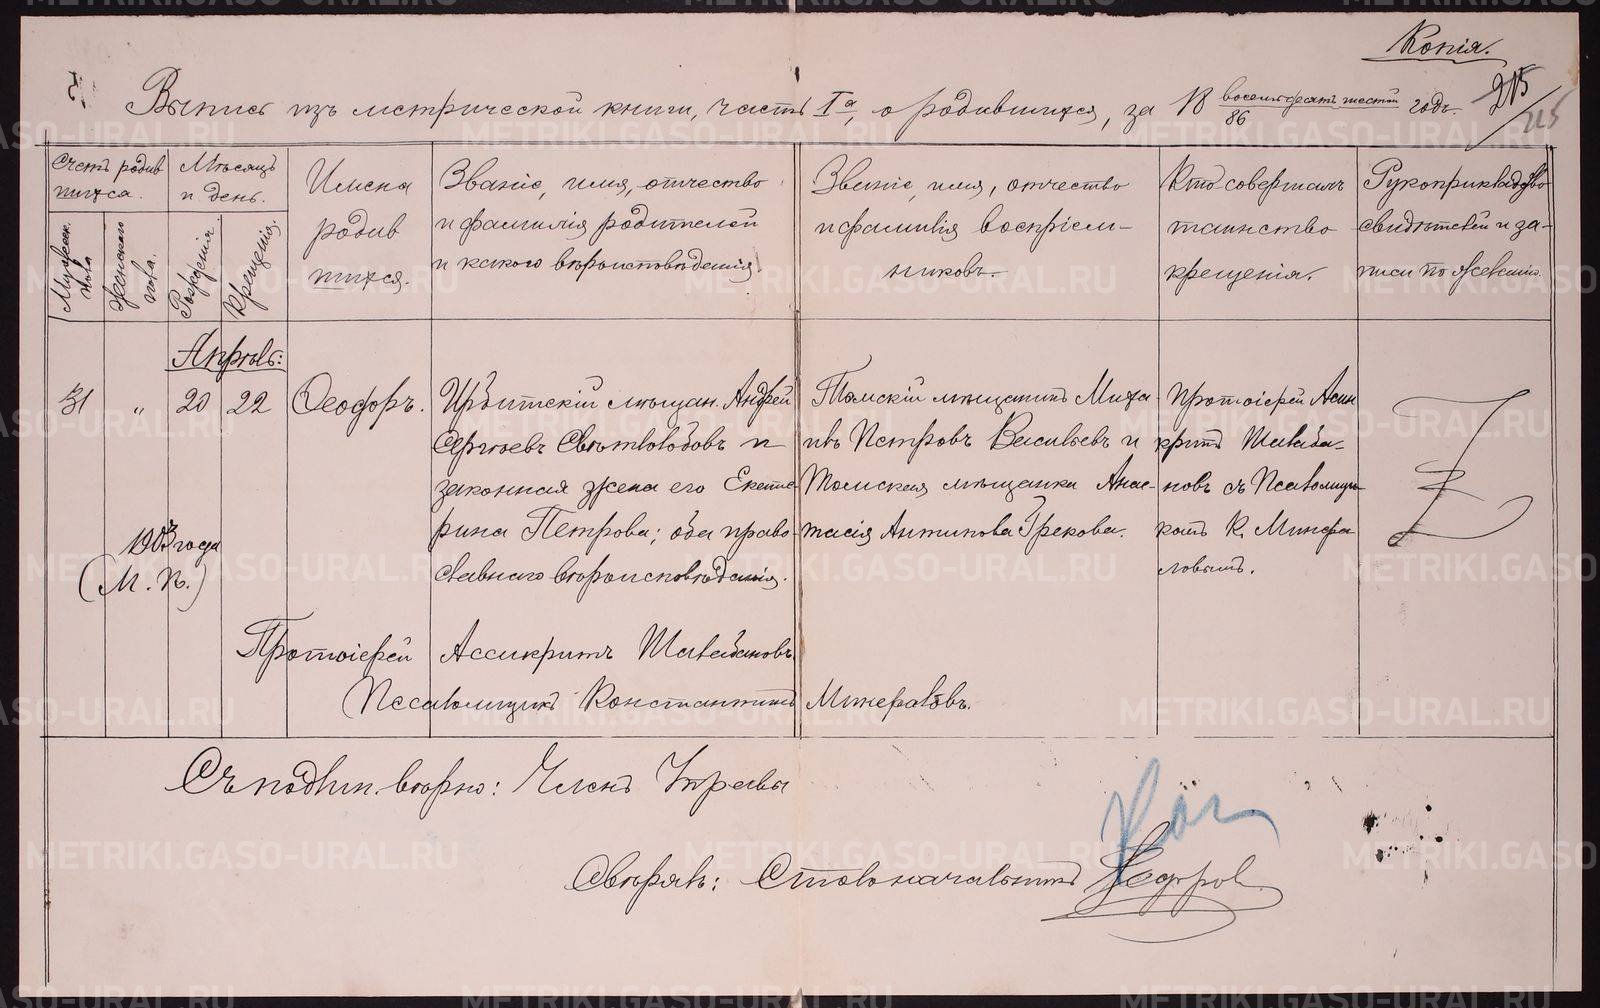 Копія.
Выпись изъ метрической книги, часть Iа, о родившихся, за 18 восемьдесятъ шестой 86 годъ. 215
215
Счетъ родив
шихся.
Мужеск. пола
Женскаго пола.
Мѣсяцъ
и день.
Рожденія
Крещенія.
Имена
родив
шихся.
Званіе, имя, отчество
и фамилія родителей
и какого вѣроисповѣданія.
Званіе, имя, отчество
и фамилія воспріем-
никовъ.
Кто совершалъ
таинство
крещенія.
Рукоприкладство
свидѣтелей и за-
писи по желанію.
Апрѣль:
31
"
20
22
Ѳеодоръ.
Ирбитскій мѣщан. Андрей
Сергѣевъ Свѣтлолобовъ и
законная жена его Екате-
рина Петрова; оба право-
славнаго вѣроисповѣданія.
Томскій мѣщанинъ Миха-
илъ Петровъ Васильевъ и
Томская мѣщанка Анас-
тасія Антипова Грекова.
Протоіерей Асин
критъ Шалаба-
новъ съ Псаломщи-
комъ К. Минера
ловымъ.
1903 года
(М. П.)
Протоіерей Ассикритъ Шалабановъ.
Псаломщикъ Константинъ Минераловъ.
Съ подлин. вѣрно: Членъ Управы
Свѣрялъ: Столоначальникъ
METRIKI.GASO-URAL.RU